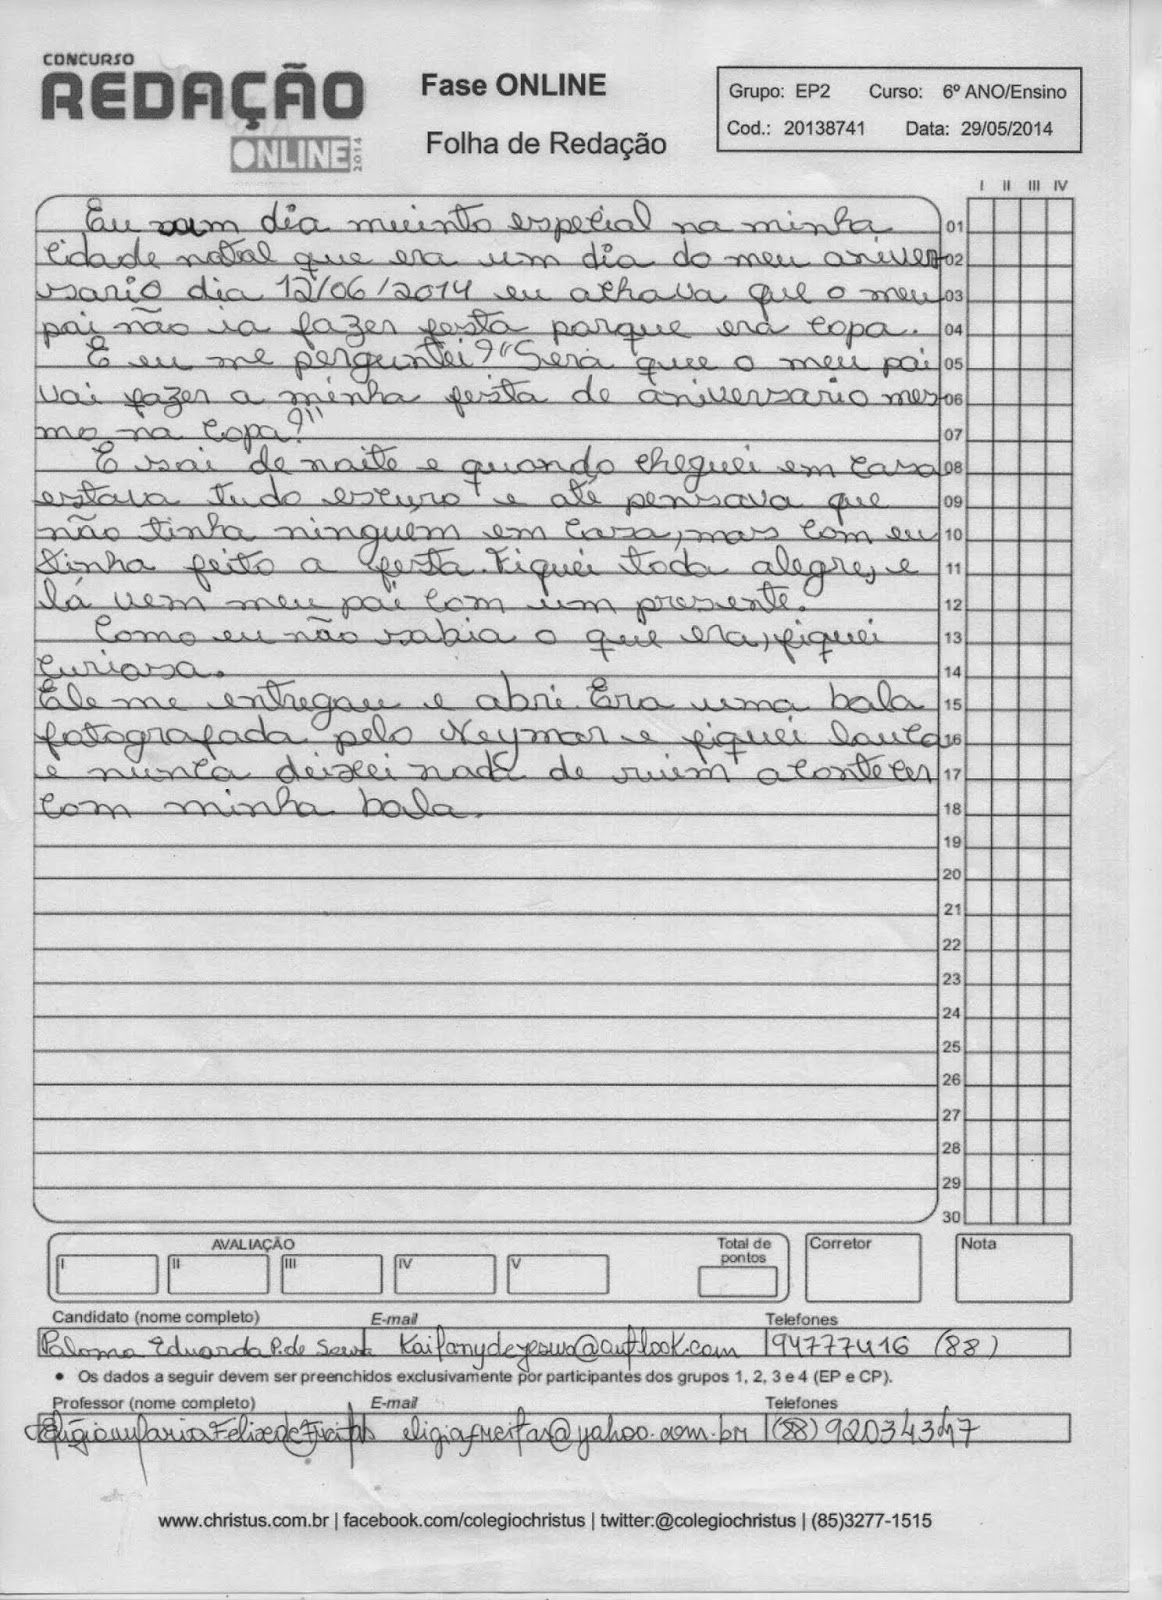 CONCURSO
REDAÇÃO
ONLINE 2014
Fase ONLINE
Folha de Redação
Grupo: EP2 Curso: 6º ANO/Ensino
Cod.: 20138741 Data: 29/05/2014
I II III IV
Eu num dia muinto especial na minha 01
cidade natal que era um dia do meu aniver 02
sario dia 12/06/2014 eu achava que o meu 03
pai não ia fazer festa porque era copa. 04
E eu me perguntei?"Será que o meu pai 05
vai fazer a minha festa de aniversario mes 06
mo na copa?" 07
E sai de noite e quando cheguei em casa 08
estava tudo escuro e até pensava que 09
não tinha ninguem em casa, mas com eu 10
tinha feito a festa. Fiquei toda alegre, e 11
lá vem meu pai com um presente. 12
Como eu não sabia o que era, fiquei 13
curiosa. 14
Ele me entregou e abri. Era uma bola 15
fotografada pelo Neymar e fiquei louca 16
e nunca deixei nada de ruim acontecer 17
com minha bola. 18
19
20
21
22
23
24
25
26
27
28
29
30
AVALIAÇÃO Total de pontos Corretor Nota
I II III IV V
Candidato (nome completo) E-mail Telefones
Paloma Eduarda P. de Sousa @outlook.com 94777416 (88)
• Os dados a seguir devem ser preenchidos exclusivamente por participantes dos grupos 1, 2, 3 e 4 (EP e CP).
Professor (nome completo) E-mail Telefones
Maria Felix de Freitas eligiafreitas@yahoo.com.br (88)
www.christus.com.br | facebook.com/colegiochristus | twitter:@colegiochristus | (85)3277-1515